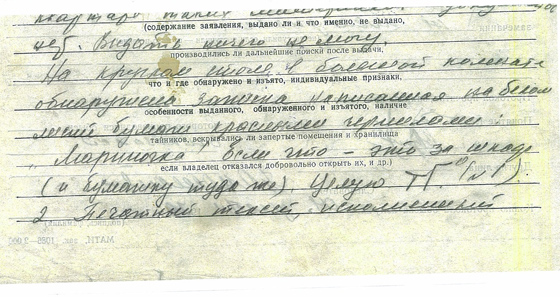 (содержание заявления, выдано ли и что именно, не выдано,
нет. Выдать ничего не могу.
производились ли дальнейшие поиски после выдачи,
На круглом столе в большой комнате
что и где обнаружено и изъято, индивидуальные признаки,
обнаружена записка написанная на белом
особенности выданного, обнаруженного и изъятого, наличие
листе бумаги красными чернилами:
тайников, вскрывались ли запертые помещения и хранилища
„Мариночка, если что – это за шкаф
если владелец отказался добровольно открыть их, и др.)
(и бумажку туда же). Целую
2. Печатный текст, исполненный